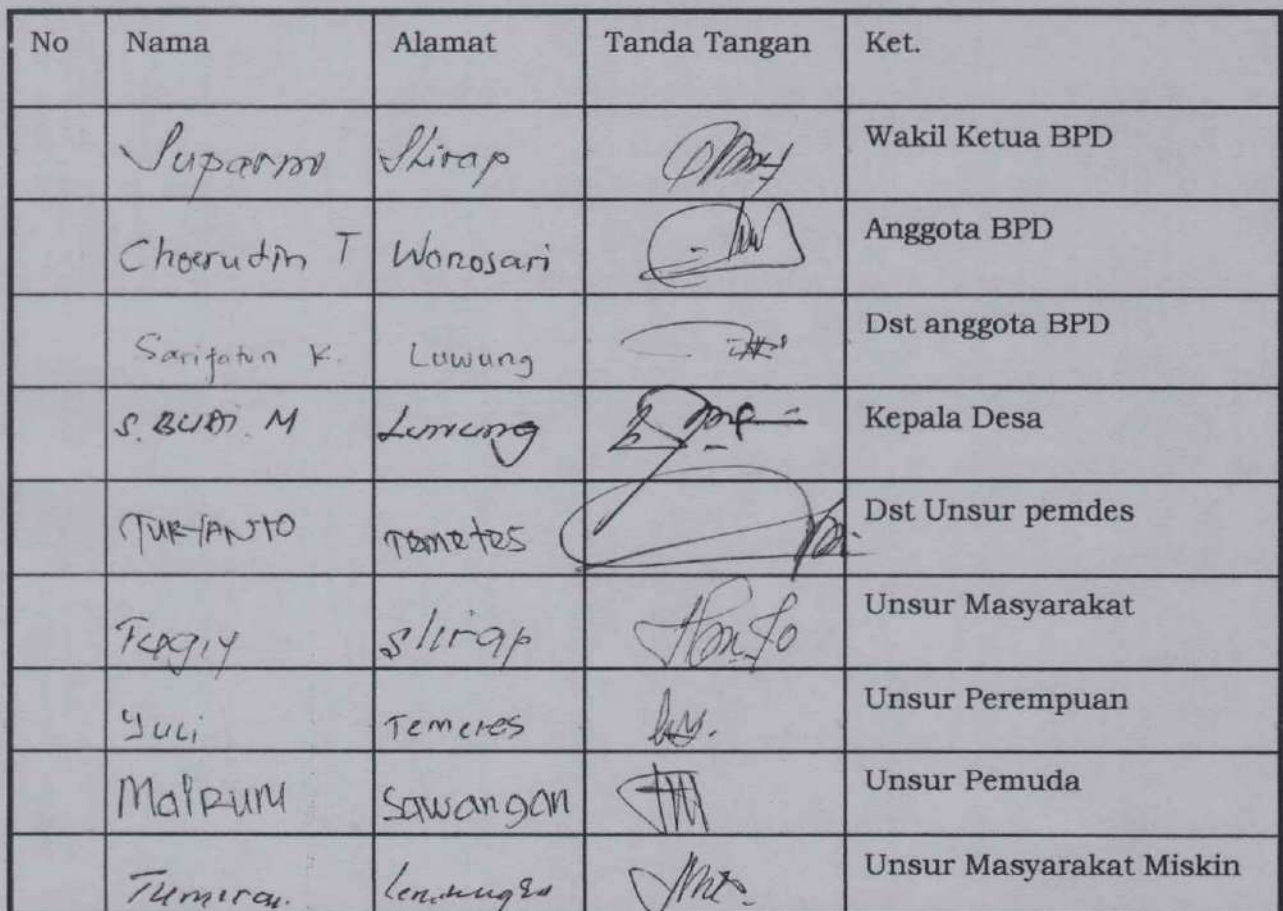 No Nama Alamat Tanda Tangan Ket.
Suparno Slirap Wakil Ketua BPD
Choerudin T Wonosari Anggota BPD
Sarifatun K. Luwung Dst anggota BPD
S. BUDI. M Luwung Kepala Desa
TURYANTO Temetes Dst Unsur pemdes
slirap Unsur Masyarakat
Yuli Unsur Perempuan
Sawangan Unsur Pemuda
Unsur Masyarakat Miskin